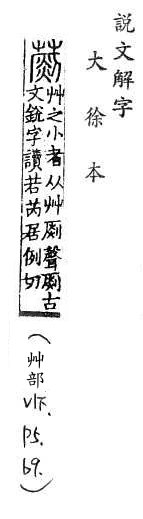 説文解字
大徐本
艸之小者从艸𠛬聲𠛬古
文銳字讀若芮居例切
(艸部 V1下. P5. b9.)